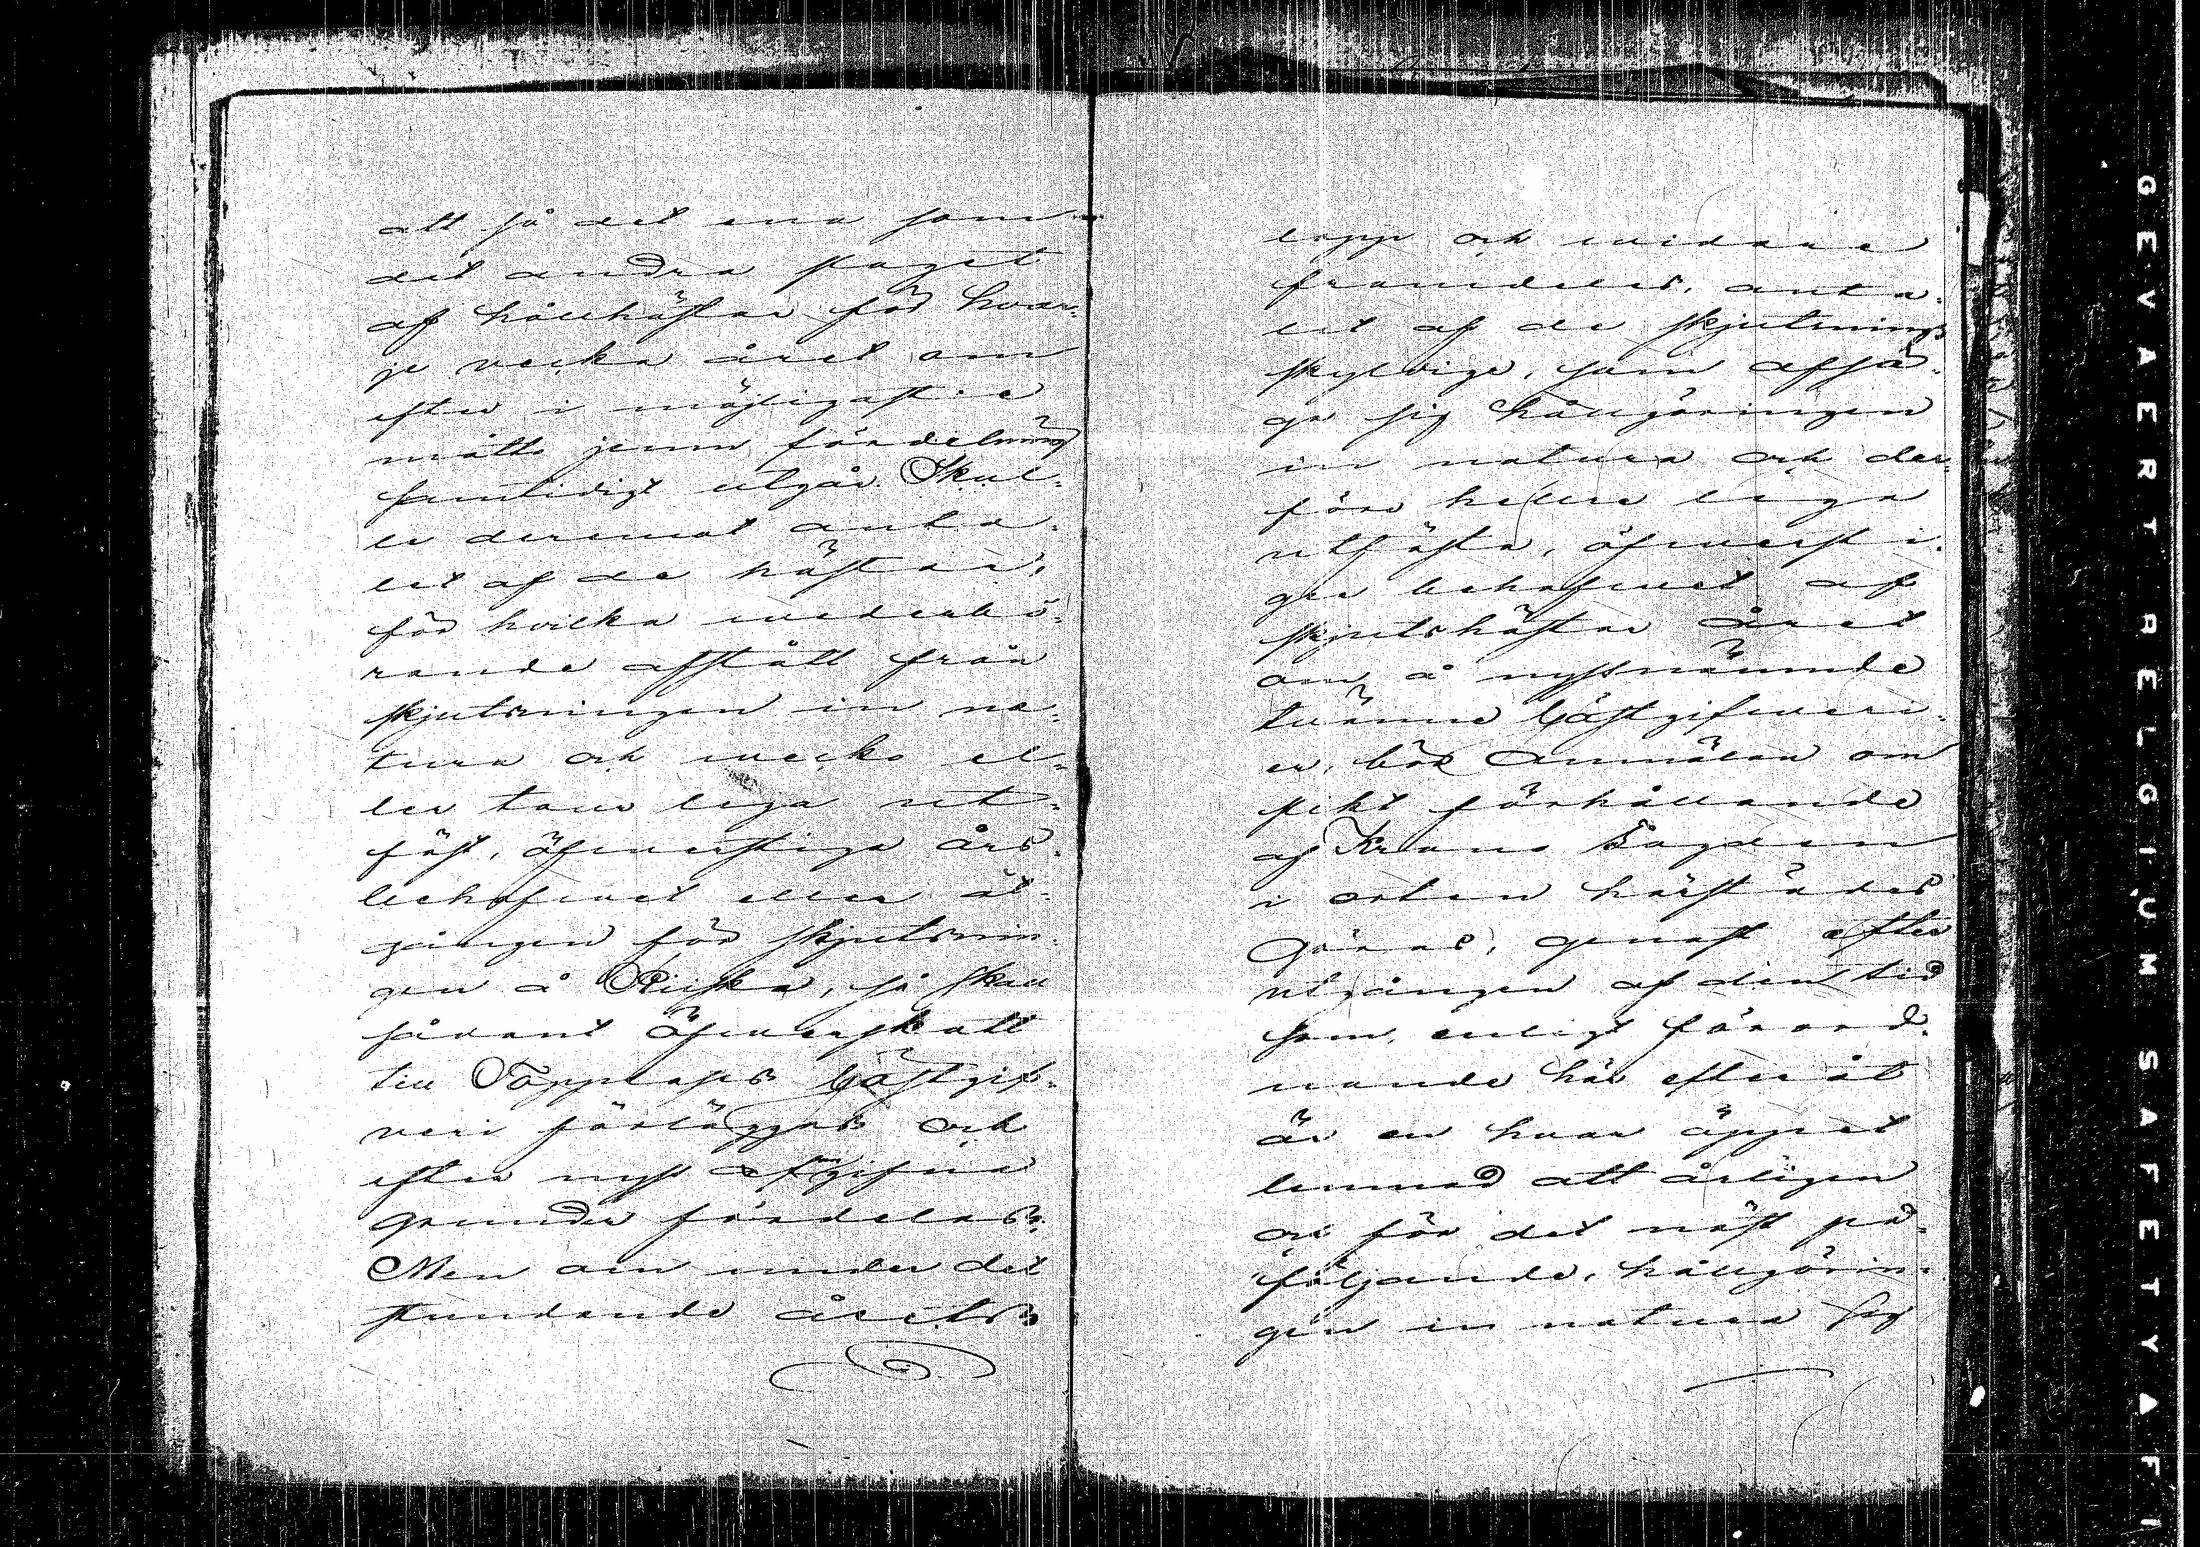 att så det ena som
det andra slaget
af hållhästar för hvar-
je vecka året om
efter i möjligaste
måtto jemn fördelning
samtidigt utgår. Skul-
le deremot anta-
let af de hästar,
för hvilka wederbö-
rande afstått från
skjutsningen in na-
tura och wecko el-
ler tour lega ut-
fäst, öfwerstiga års-
behofwet eller åt-
gången för skjutsnin-
gen å Riiska, så skall
sådant öfwerskott
till Töpplaps Gästgif-
veri förläggas och
efter nyss afgifna
grunder fördelas.
Men om under det
stundande årets
lopp och widare
framdeles, anta-
let af de skjutsnings
skyldige, som afsä-
ga sig hållgöringen
in natura och der-
före hellre lega
utfästa, öfwersti-
ger behofwet af
skjutshästar året
om å nyssnämnde
twänne Gästgifweri-
er, bör anmälan om
slikt förhållande
af Krono Fogden
i orten härstädes
göras, genast efter
utgången af den tid
som, enligt förord-
nande här efteråt
är en hvar öppet
lemnad att årligen
för det näst på-
följande, hållgörin-
gen in natura sig
GEVAERT BELGIUM SAFETY FI